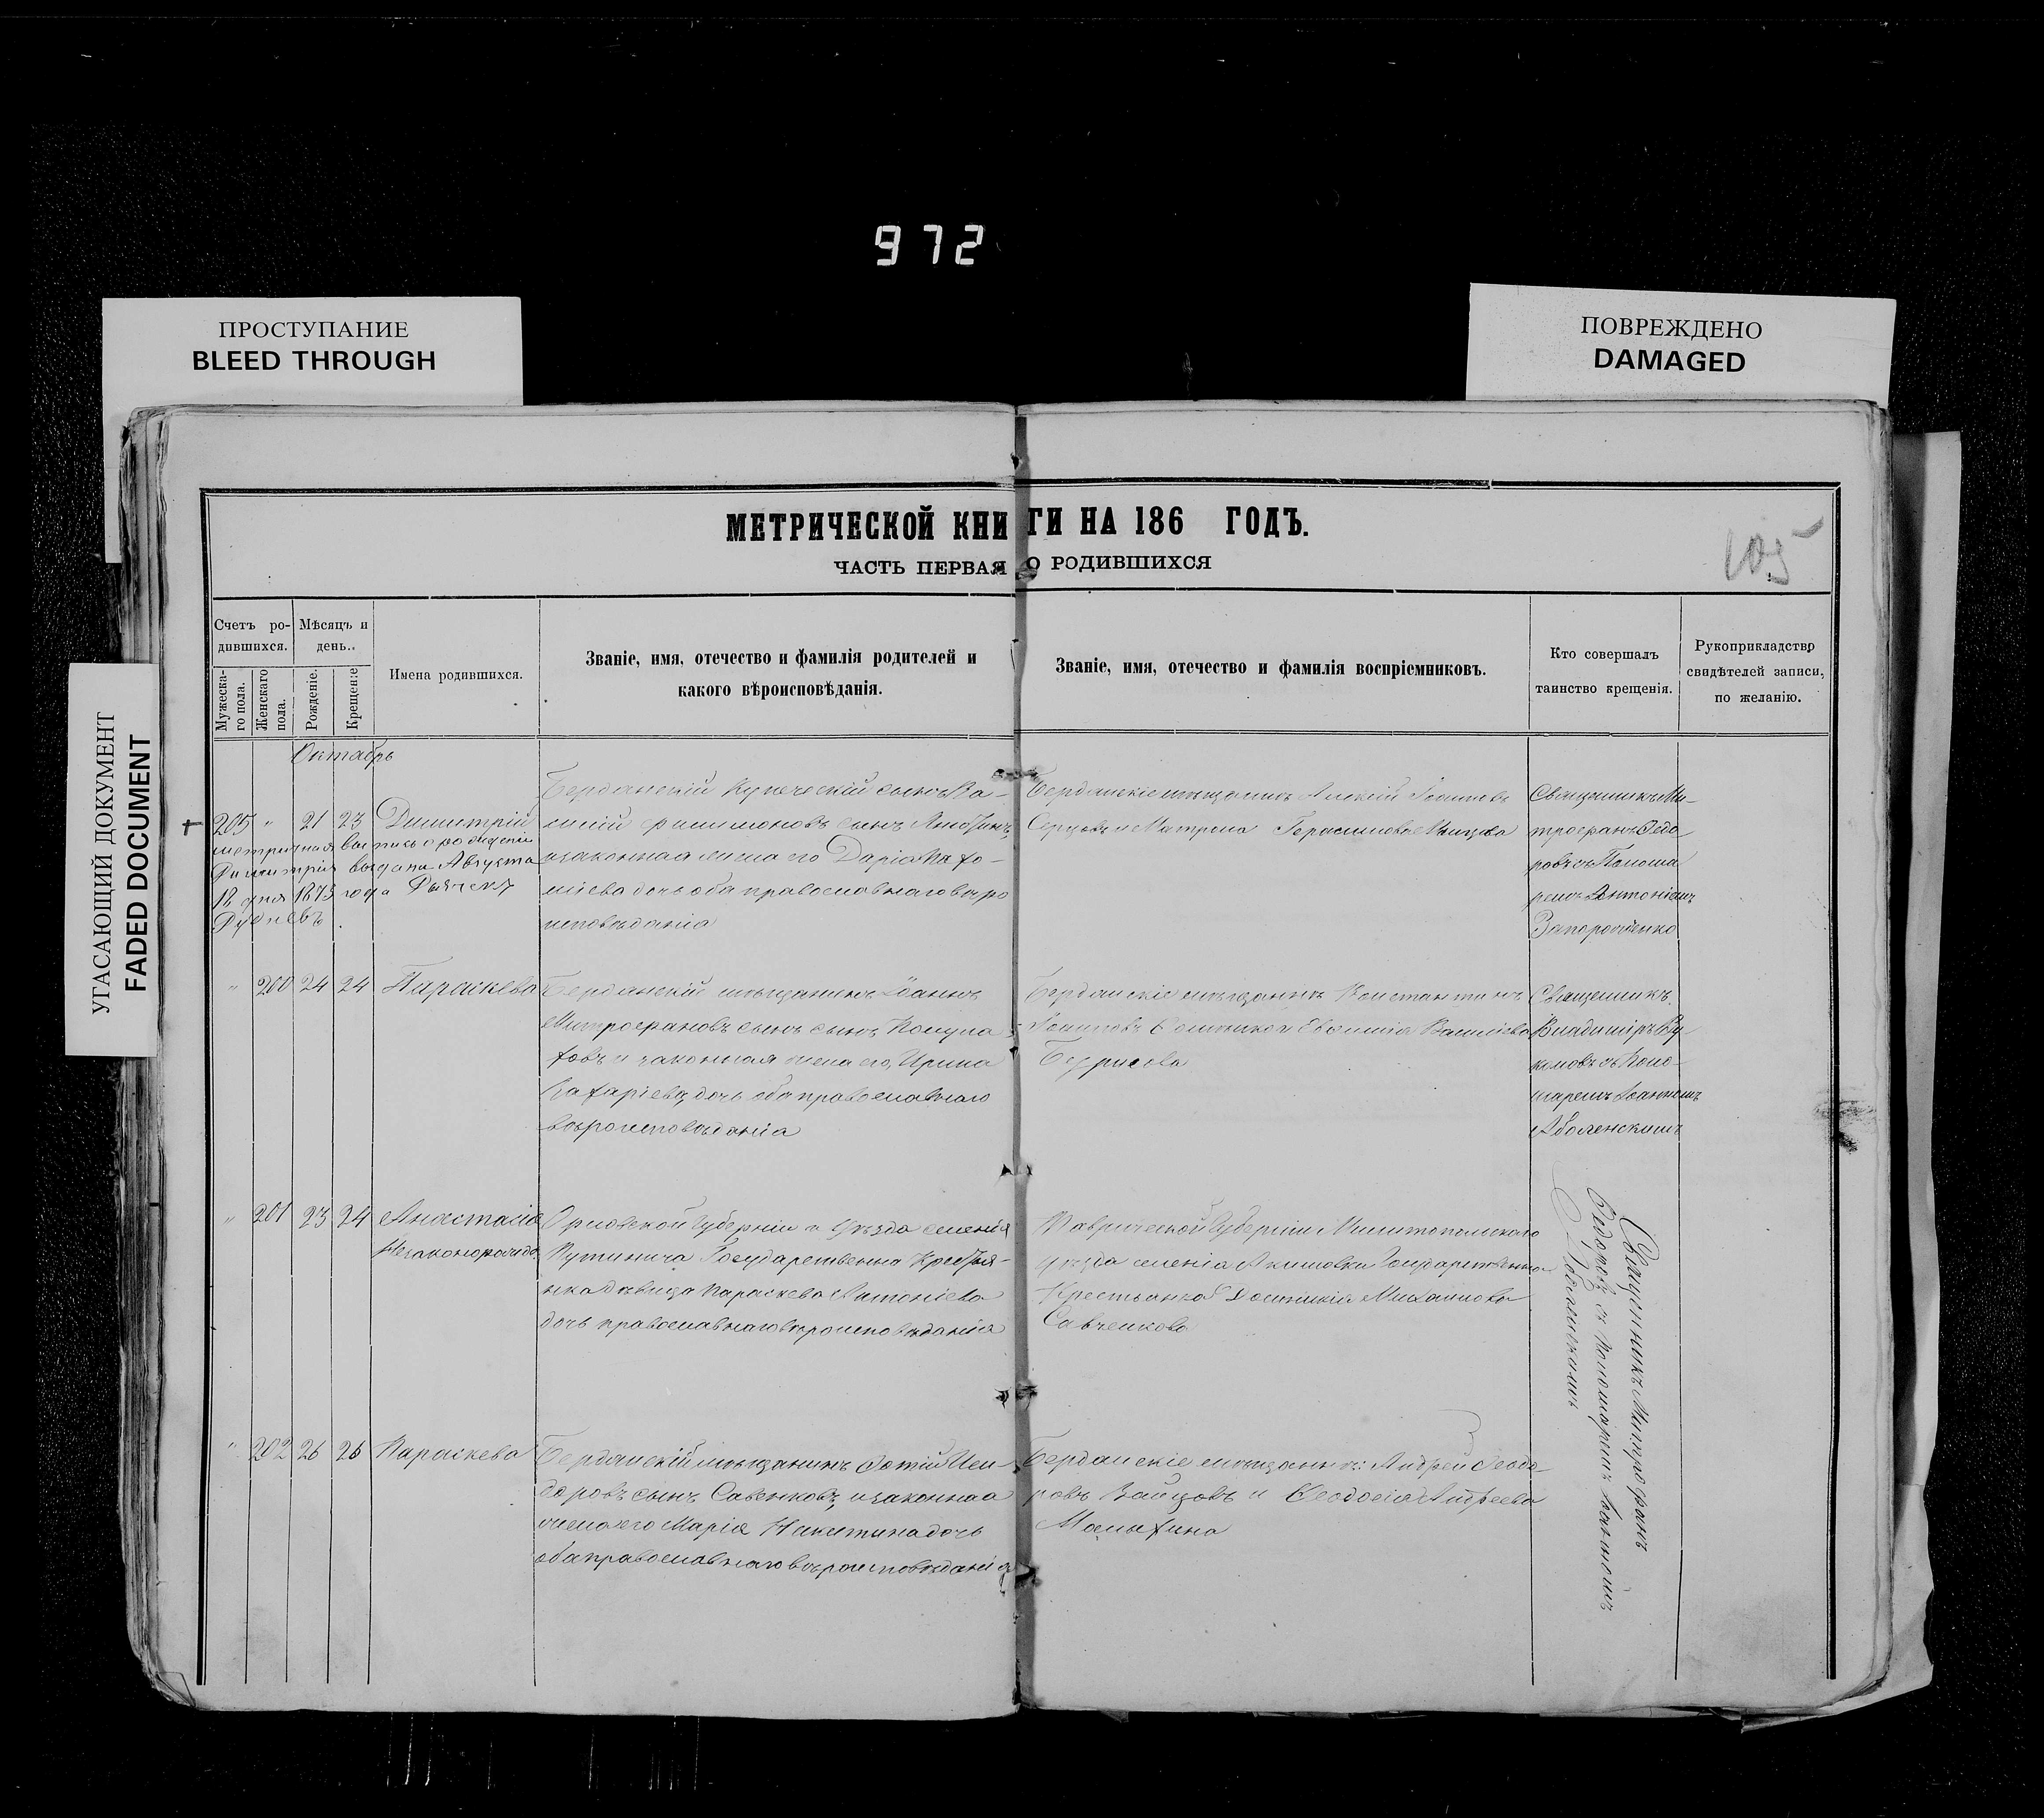 972
ПРОСТУПАНИЕ
BLEED THROUGH
ПОВРЕЖДЕНО
DAMAGED
УГАСАЮЩИЙ ДОКУМЕНТ
FADED DOCUMENT
МЕТРИЧЕСКОЙ КНИГИ НА 186 ГОДЪ.
ЧАСТЬ ПЕРВАЯ О РОДИВШИХСЯ
105
Счетъ ро-
дившихся.
Мужеска-
го пола.
Женскаго
пола.
Мѣсяцъ и
день.
Рожденіе.
Крещеніе
Имена родившихся.
Званіе, имя, отечество и фамилія родителей и
какого вѣроисповѣданія.
Званіе, имя, отечество и фамилія воспріемниковъ.
Кто совершалъ
таинство крещенія.
Рукоприкладство
свидѣтелей записи,
по желанію.
Октябрь
205 " 21 23 Димитрій
метричная выпись о рожденіи
Димитрія выдана Августа
18 дня 1875 года
Бердянскій Купеческій сынъ Ва-
силій Филимоновъ сынъ
и законная жена его Дарія Па хо-
міева дочь оба православнаго вѣро
исповѣданія
Бердянскіе мѣщанинъ Алексѣй Іоанновъ
и Матрона Герасимова
Священникъ Ми-
трофанъ Ѳедо
ровъ съ Понома
ремъ Антоніемъ
" 200 24 24 Параскева
Бердянскій мѣщанинъ Іоаннъ
Митрофановъ сынъ сынъ
ховъ и законная жена его, Ирина
Захаріева, дочь оба православнаго
вѣроисповѣданія
Бердянскіе мѣщанинъ Константинъ
Іоанновъ и Евфимія Василіева
Священникъ
Владиміръ Ву
коловъ съ Поно-
маремъ Іоанномъ
Аболенскимъ
" 201 23 24 Анастасія
Незаконорожд.
Орловской Губерніи и Уѣзда селенія
Путимича Государственна Крестья-
нка дѣвица Параскева Антоніева
дочь православнаго вѣроисповѣданія
Таврической Губерніи Мелитопольскаго
уѣзда селенія Акимовки Государственна
Крестьянка Михаилова
Савченкова
Священникъ Митрофанъ
Ѳедоровъ съ Пономаремъ Іоанномъ
Аболенскимъ
" 202 26 26 Параскева
Бердянскій мѣщанинъ Фотій Иси-
доровъ сынъ Савенковъ, и законная
жена его Марія Никитина дочь
оба православнаго вѣроисповѣданія
Бердянскіе мѣщанинъ: Андрей Ѳеодо-
ровъ Зайцовъ и Ѳеодосія Андреева
Малыхина